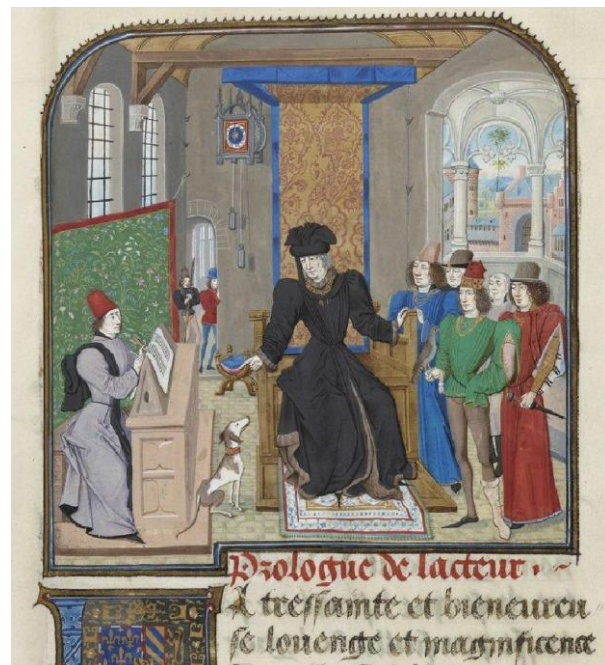 Prologue de lacteur .
A tressainte et bieneureu
se louenge et magnificence